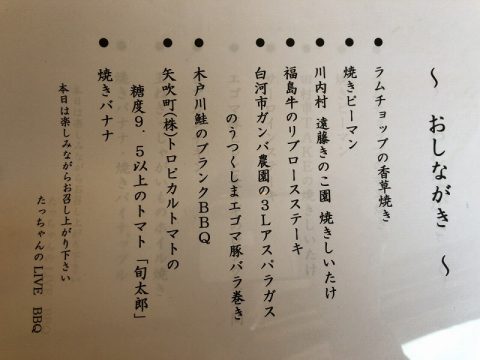 ～ おしながき ～
● ラムチョップの香草焼き
● 焼きピーマン
● 川内村 遠藤きのこ園 焼きしいたけ
● 福島牛のリブロースステーキ
● 白河市ガンバ農園の3Lアスパラガス
のうつくしまエゴマ豚バラ巻き
● 木戸川鮭のプランクBBQ
● 矢吹町(株)トロピカルトマトの
糖度9.5以上のトマト「旬太郎」
● 焼きバナナ
本日は楽しみながらお召し上がり下さい
たっちゃんのLIVE BBQ